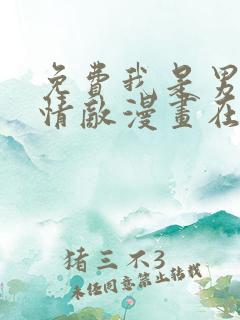 免費我是男
情敵漫畫在
猪三不3
未经同意禁止转载